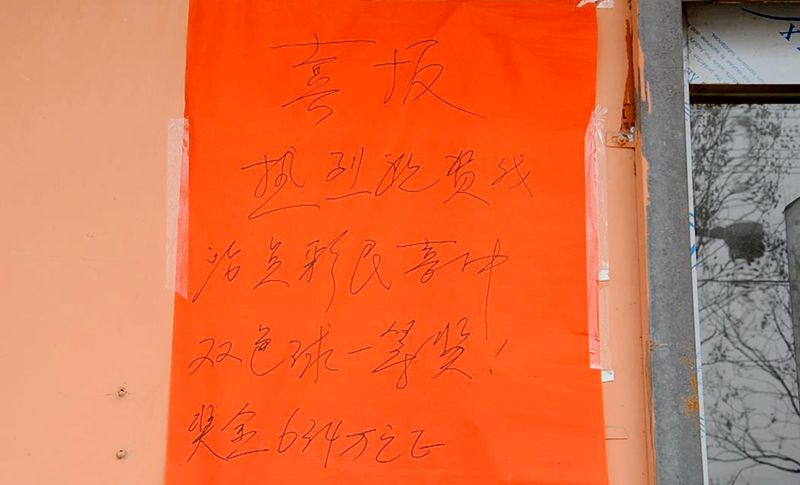 喜报
热烈祝贺我
站点彩民喜中
双色球一等奖!
奖金634万元正